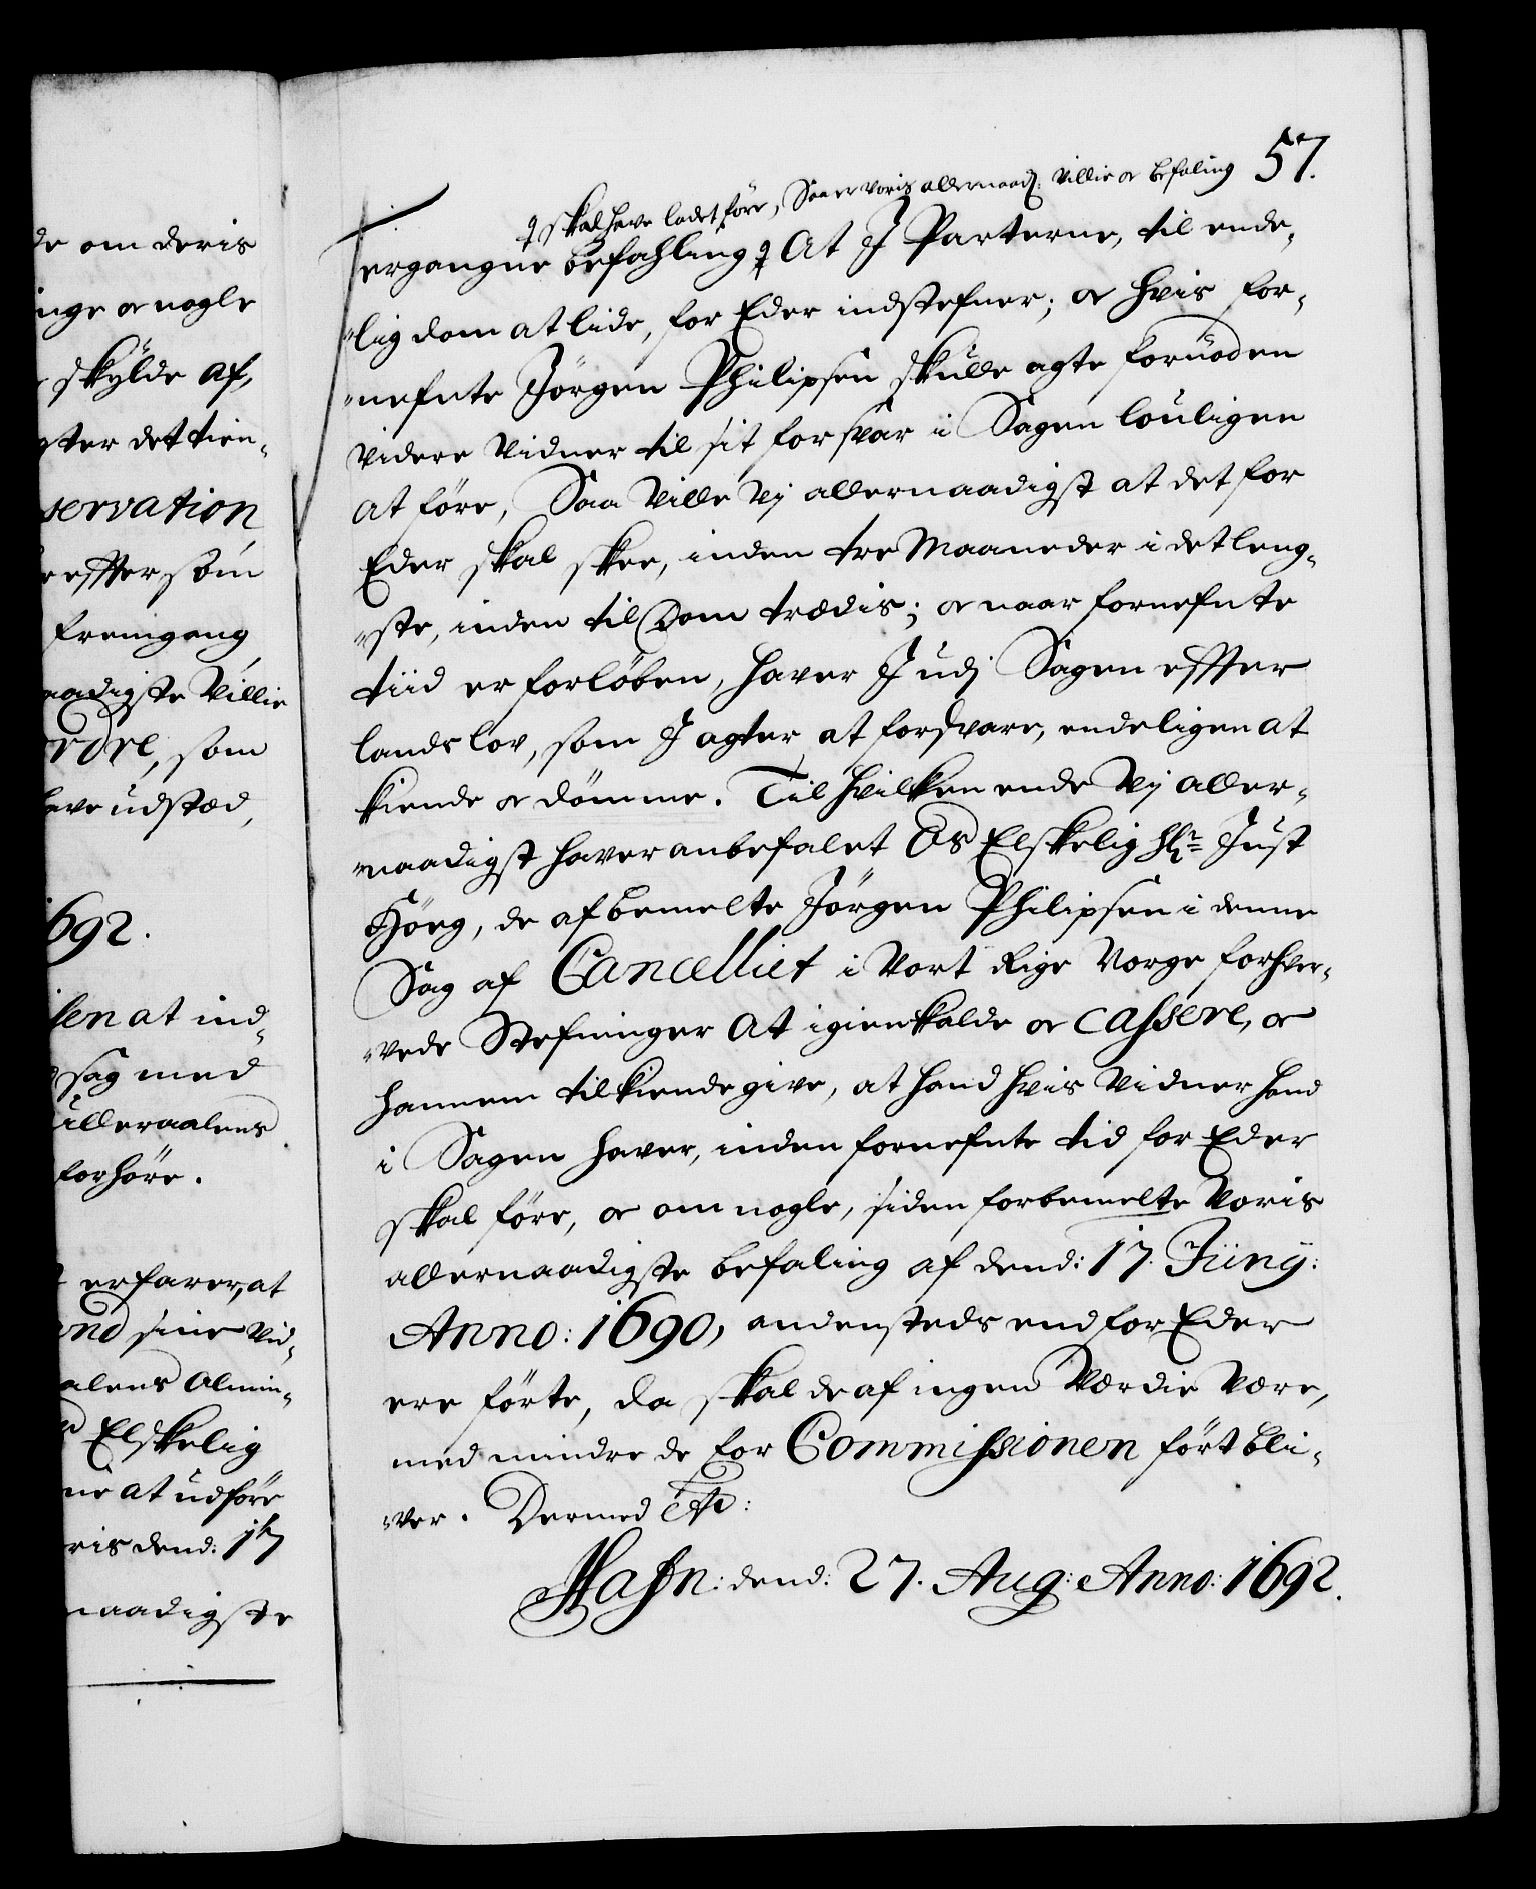 de om deris
inge oc nogle
skylde af,
gter det tien-
servation
effter som
fremgang
aadigste Villie
rdre, som
have udstæd,
1692.
sen at ind-
sag med
forhöre.
erfarer, at
end sine Vid-
alens Almin-
Elskelig
ne at udföre
ris dend: 17
naadigste
57.
skal have ladet före, Saa er Voris allernaad: Villie oc befaling
ergangne befahling At I Parterne, til ende-
lig dom at lide, for Eder indstefner; oc hvis for-
nefnte Jörgen Philipsen skulle agte foruoden
videre Vidner til sit forsvar i Sagen louligen
at före, Saa Ville Vj allernaadigst at det for
Eder skal skee, inden tre Maaneder i det leng-
ste, inden til Dom trædis; oc naar fornefnte
tiid er forlöben, haver I udj Sagen effter
landslov, som I agter at forsvare, endeligen at
kiende oc dömme. Til hvilken ende Vj aller-
naadigst haver anbefalet Os Elskelig Hr: Just
Höeg, de af bemelte Jörgen Philipsen i denne
Sag af Cancelliet i Vort Rige Norge forhver-
vede Stefninger At igienkalde oc cassere, oc
hannem tilkiende give, at hand hvis Vidner hand
i Sagen haver, inden fornefnte tid for Eder
skal före, oc om nogle, siden forbemelte Voris
allernaadigste befaling af dend: 17. Junij:
Anno: 1690, andensteds end for Eder
ere förte, da skal de af ingen Værdie Være,
med mindre de for Commissionen fört bli-
ver. Dermed etc:
Hafn: dend: 27. Aug: Anno: 1692.